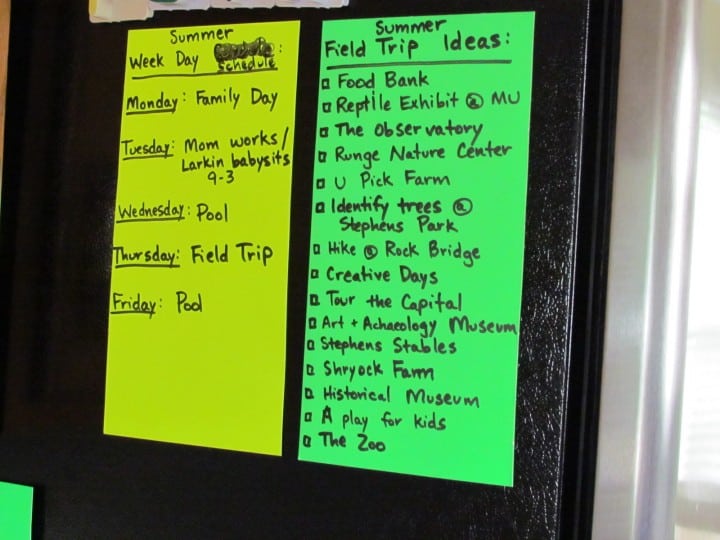 Summer
Week Day
Schedule:
Monday: Family Day
Tuesday: Mom works/
Larkin babysits
9-3
Wednesday: Pool
Thursday: Field Trip
Friday: Pool
Summer
Field Trip Ideas:
Food Bank
Reptile Exhibit @ MU
The Observatory
Runge Nature Center
U Pick Farm
Identify trees @
Stephens Park
Hike @ Rock Bridge
Creative Days
Tour the Capital
Art + Achaeology Museum
Stephens Stables
Shryock Farm
Historical Museum
A play for kids
The Zoo